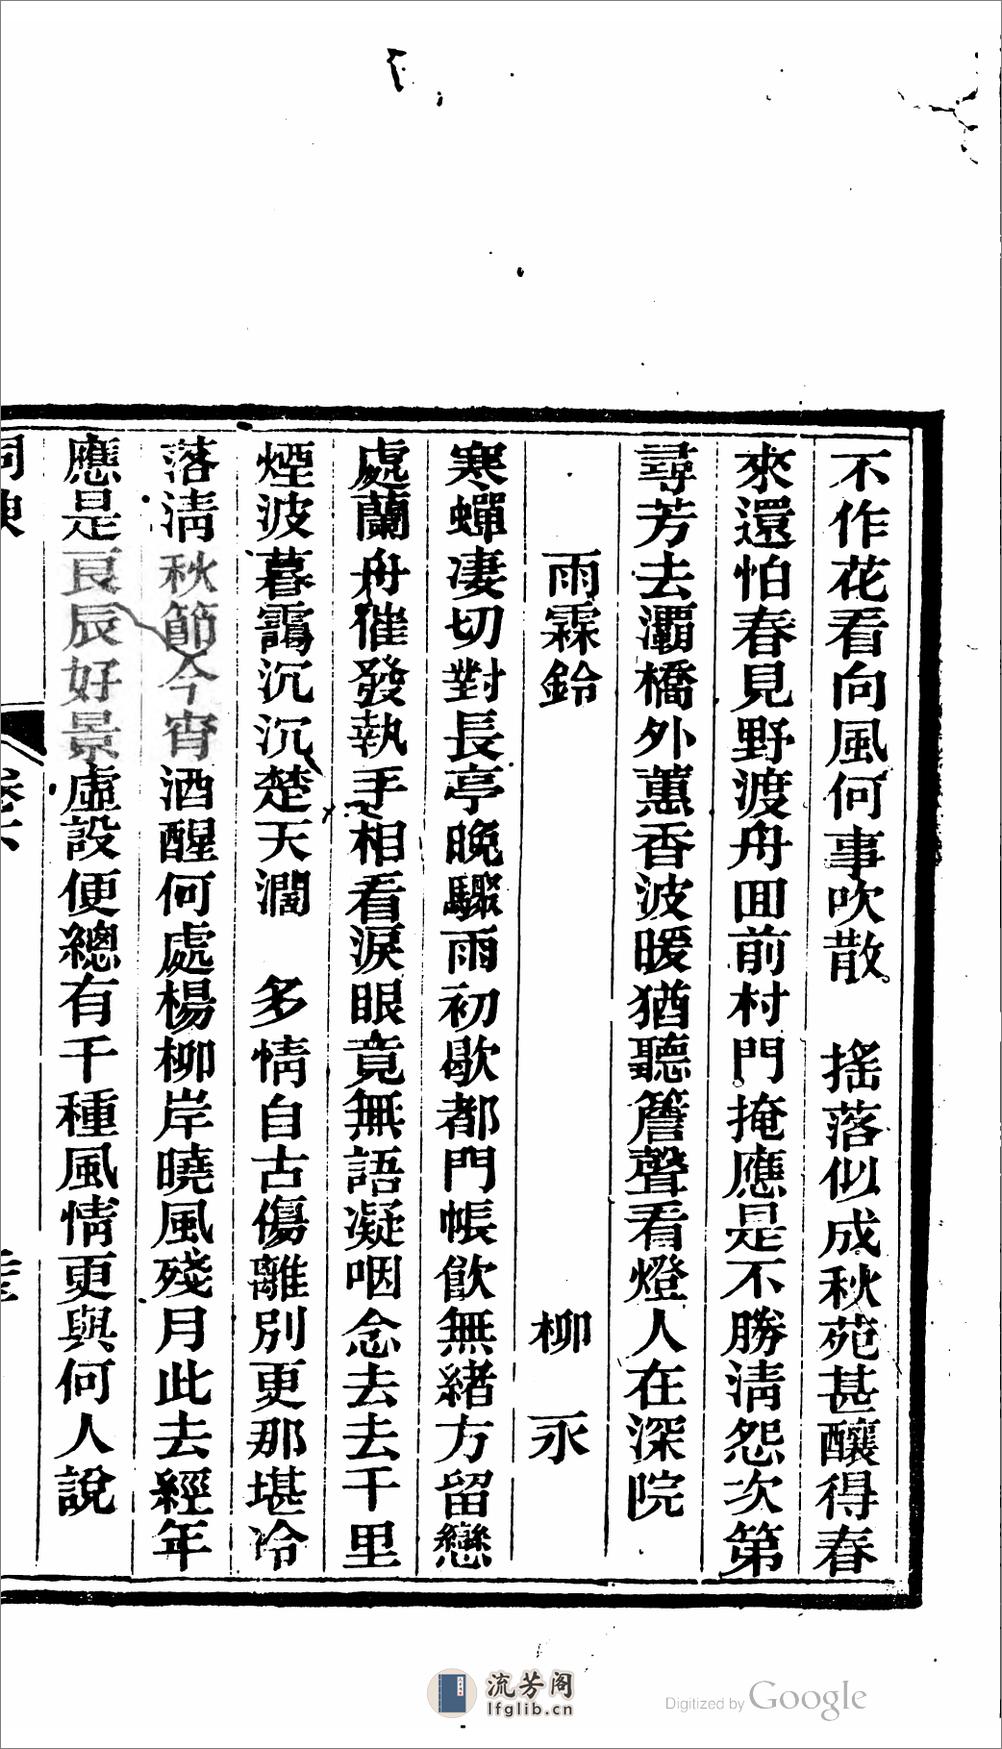 不作花看向風何事吹散　搖落似成秋苑甚釀得春
來還怕春見野渡舟囬前村門掩應是不勝清怨次第
尋芳去灞橋外蕙香波暖猶聽簷聲看燈人在深院
雨霖鈴　柳永
寒蟬凄切對長亭晚驟雨初歇都門帳飲無緒方留戀
處蘭舟催發執手相看淚眼竟無語凝咽念去去千里
煙波暮靄沉沉楚天濶　多情自古傷離別更那堪冷
落清秋節今宵酒醒何處楊柳岸曉風殘月此去經年
應是良辰好景虛設便總有千種風情更與何人說
卷六
流芳阁
lfglib.cn
Digitized by Google